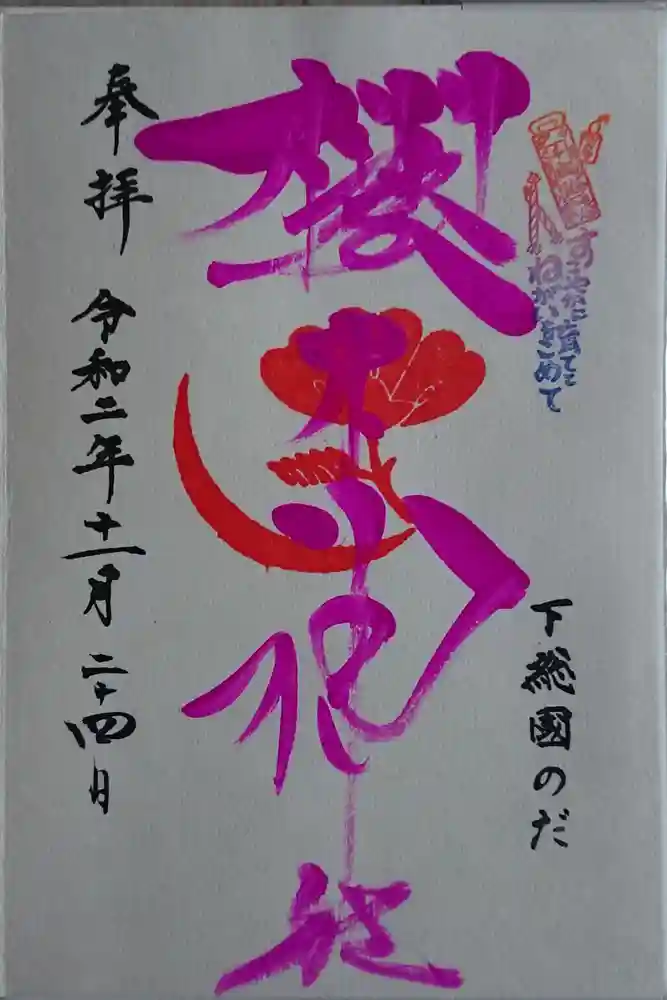 すこやかに育てと
ねがいをこめて
下総國のだ
櫻木神社
奉拝 令和二年十一月二十四日